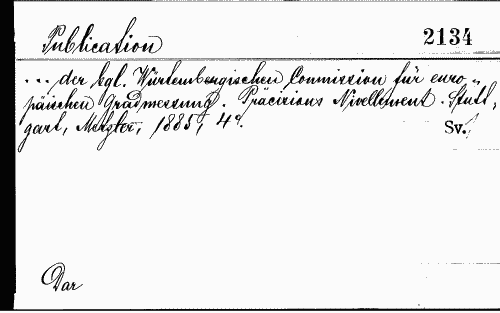 Publication 2134
... der kgl. Würtembergischen Commission für euro„
päischen Gradmessung. Präcisions Nivellement. Stutt„
gart, Metzler, 1885, 4°.
Sv.
Dar